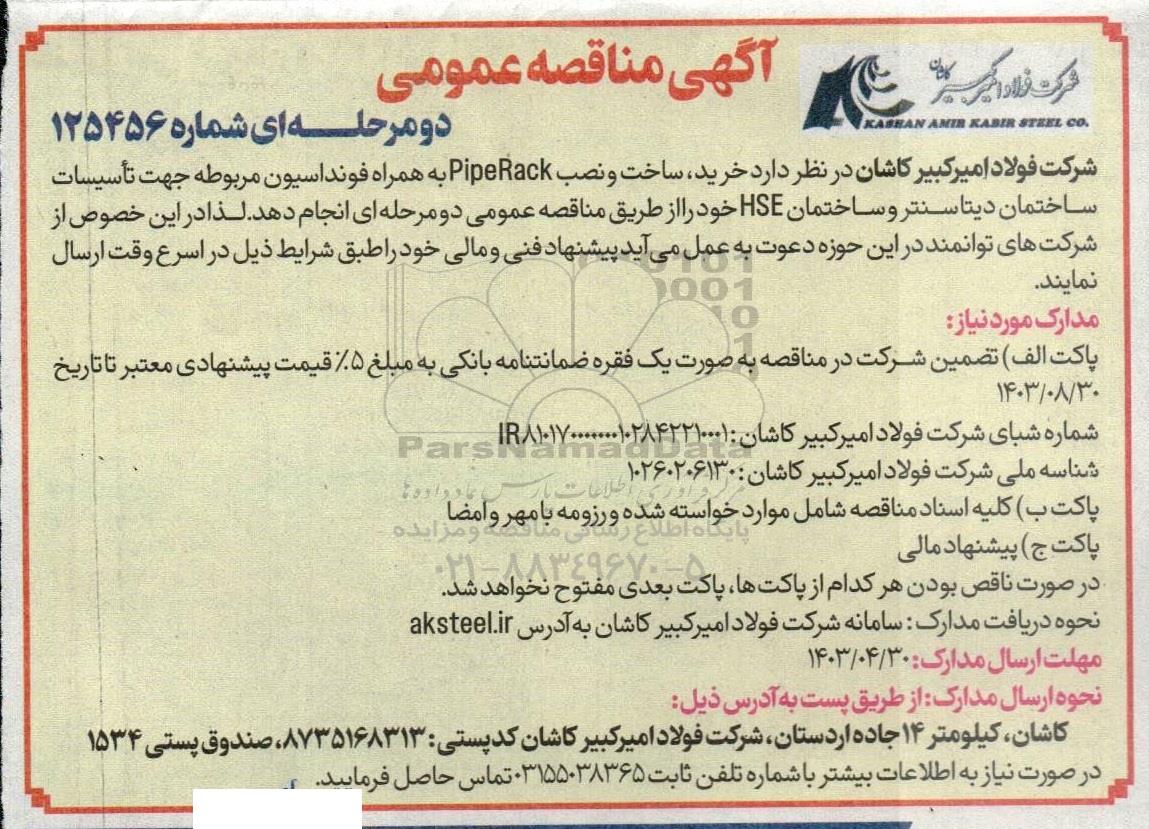 آگهی مناقصه عمومی
دو مرحلـــــه ای شماره ۱۲۵۴۵۶
شرکت فولاد امیرکبیر کاشان
KASHAN AMIR KABIR STEEL CO.
شرکت فولاد امیرکبیر کاشان در نظر دارد خرید، ساخت و نصب PipeRack به همراه فونداسیون مربوطه جهت تأسیسات
ساختمان دیتاسنتر و ساختمان HSE خود را از طریق مناقصه عمومی دو مرحله ای انجام دهد. لـذا در این خصوص از
شرکت های توانمند در این حوزه دعوت به عمل می آید پیشنهاد فنی و مالی خود را طبق شرایط ذیل در اسرع وقت ارسال
نمایند.
مدارک مورد نیاز:
پاکت الف) تضمین شرکت در مناقصه به صورت یک فقره ضمانتنامه بانکی به مبلغ ۵٪ قیمت پیشنهادی معتبر تا تاریخ
۱۴۰۳/۰۸/۳۰
شماره شبای شرکت فولاد امیرکبیر کاشان:
شناسه ملی شرکت فولاد امیرکبیر کاشان: ۱۰۲۶۰۲۰۶۱۳۰
پاکت ب) کلیه اسناد مناقصه شامل موارد خواسته شده و رزومه با مهر و امضا
پاکت ج) پیشنهاد مالی
در صورت ناقص بودن هر کدام از پاکت ها، پاکت بعدی مفتوح نخواهد شد.
نحوه دریافت مدارک: سامانه شرکت فولاد امیرکبیر کاشان به آدرس aksteel.ir
مهلت ارسال مدارک: ۱۴۰۳/۰۴/۳۰
نحوه ارسال مدارک: از طریق پست به آدرس ذیل:
کاشان، کیلومتر ۱۴ جاده اردستان، شرکت فولاد امیرکبیر کاشان کدپستی: ۸۷۳۵۱۶۸۳۱۳، صندوق پستی ۱۵۳۴
در صورت نیاز به اطلاعات بیشتر با شماره تلفن ثابت ۰۳۱۵۵۰۳۸۳۶۵ تماس حاصل فرمایید.
ParsNamadData
مرکز فرآوری اطلاعات پارس نماد داده ها
پایگاه اطلاع رسانی مناقصه و مزایده
۰۲۱-۸۸۳۴۹۶۷۰-۵